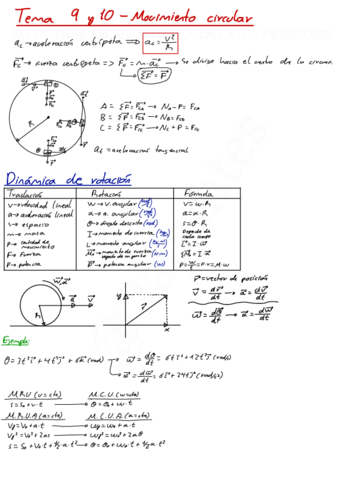 Tema 9 y 10 - Movimiento circular
ac → aceleración centrípeta ⟹ ac = v²/R
Fc → fuerza centrípeta => Fc = m · ac → Se dirige hacia el centro de la circun.
ΣF = F
A = ΣF = Fca → Na - P = Fca
B = ΣF = Fcb → Nb = Fcb
C = ΣF = Fcc → Nc + P = Fcc
at = aceleración tangencial
Dinámica de rotación
Traslación Rotación Fórmula
v → velocidad lineal W → v. angular v = w · R
a → aceleración lineal α → a. angular a = α · R
s → espacio θ → ángulo descrito (rad) s = θ · R
m → masa I → momento de inercia Depende de cada cuerpo
p → cantidad de movimiento L → momento angular L = I · ω
F → Fuerza M → momento de fuerza respecto de un punto (N·m) ΣM = I · α
P → potencia P → potencia angular (W)
w, α
R
a v
y
x
r = vector de posición
v = dr/dt → a = dv/dt
ω = dθ/dt → α = dω/dt
Ejemplo:
θ = 3t² i + 4t³ j + 6k (rad) → ω = dθ/dt = 6t i + 12t² j (rad/s)
α = dω/dt = 6 i + 24t j (rad/s²)
M.R.U (v = cte) M.C.U (w = cte)
s = s₀ + v · t → θ = θ₀ + w · t
M.R.U.A (a = cte) M.C.U.A. (α = cte)
Vf = V₀ + a · t → ωf = ω₀ + α · t
Vf² = V₀² + 2as → ωf² = ω₀² + 2αθ
s = S₀ + V₀ · t + ½ a · t² → θ = θ₀ + ω₀ · t + ½ α · t²